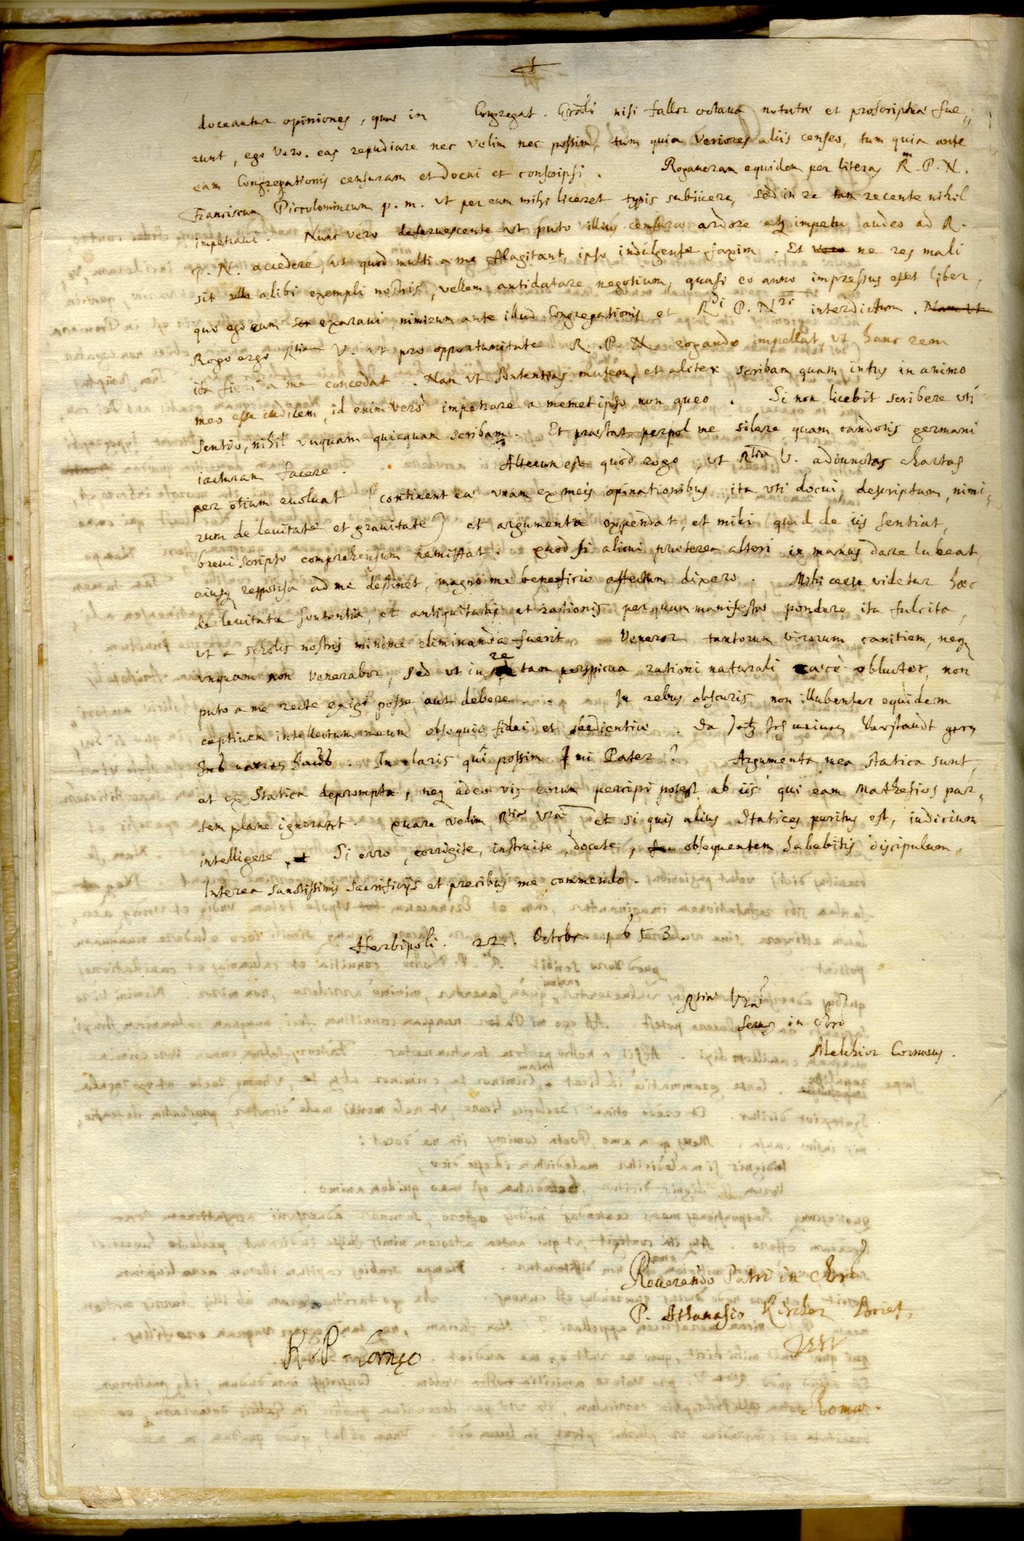 doceantur opiniones, quae in Congregat. Gnāli nisi fallor octaua notatae et proscriptae fue,,
runt, ego vero eas repudiare nec velim nec possim, tum quia veriores aliis censeo, tum quia ante
eam Congregationis censuram et docui et conscripsi. Rogaueram equidem per literas R. P. N.
Franciscum Piccolomineum p. m. ut per eum mihi liceret typis subiicere, sed in re tam recente nihil
impetraui. Nunc vero deferuescente ut puto illius censurae ardore et impetu audeo ad R.
P. N. accedere, ut quod multi a me flagitant, ipso indulgente faxim. Et ne res mali
sit alibi exempli nostris, vellem antidatare negotium, quasi eo anno impressus esset liber,
quo ego eum exaraui, nimirum ante illud Congregationis et Rdi P. Nri interdictum.
Rogo ergo Rtiam V. ut pro opportunitate R. P. N. rogando impellat, ut hanc rem
ita fieri a me concedat. Nam ut sententias mutem, et aliter scribam, quam intus in animo
meo iudicem, id enimvero impetrare a memetipso non queo. Si non licebit scribere uti
sentio, nihil unquam quicquam scribam. Et praestat silere quam candoris germani
iacturam facere. Alterum est quod rogo, ut Rtia V. adiunctas chartas
per otium euoluat (continent eae unam ex meis opinationibus, ita uti docui, descriptam, nimi,
rum de leuitate et grauitate) et argumenta expendat, et mihi quid de iis sentiat,
breui scripto comprehensum remittat. Quod si alicui praeterea alteri in manus dare lubeat,
eiusq responsa ad me destinet, magno me beneficio affectum dixero. Mihi certe videtur haec
de leuitate sententia, et antiquitatis et rationis per quam manifestae pondere ita fulcita,
ut e scholis nostris minime eliminanda fuerit. Veneror tantorum virorum canitiem, neq
unquam non venerabor, sed ut in re tam perspicua rationi naturali obluctor, non
puto a me recte exigi posse aut debere. In rebus obscuris non illubenter equidem
captiuem intellectum meum obsequio fidei et obedientiae. Da
In claris quî possim mi Pater? Argumenta mea statica sunt,
et ex Statica deprompta, neq adeo vis eorum percipi potest ab iis qui eam Matheseos par,
tem plane ignorant. Quare velim Rtiae Vrae et si quis alius Statices peritus est, iudicium
intelligere. Si erro, corrigite, instruite, docete, obsequentem habebitis discipulum.
Interea sanctissimis sacrificijs et precibus me commendo.
Herbipoli. 22. Octobr. 1653.
Rtiae Vrae
Seruus in Chro
Melchior Cornaeus.
Reuerendo Patri in Chro
P. Athanasio Kircher Societ,
Jesu
Romae.
R. P. Cornaeo